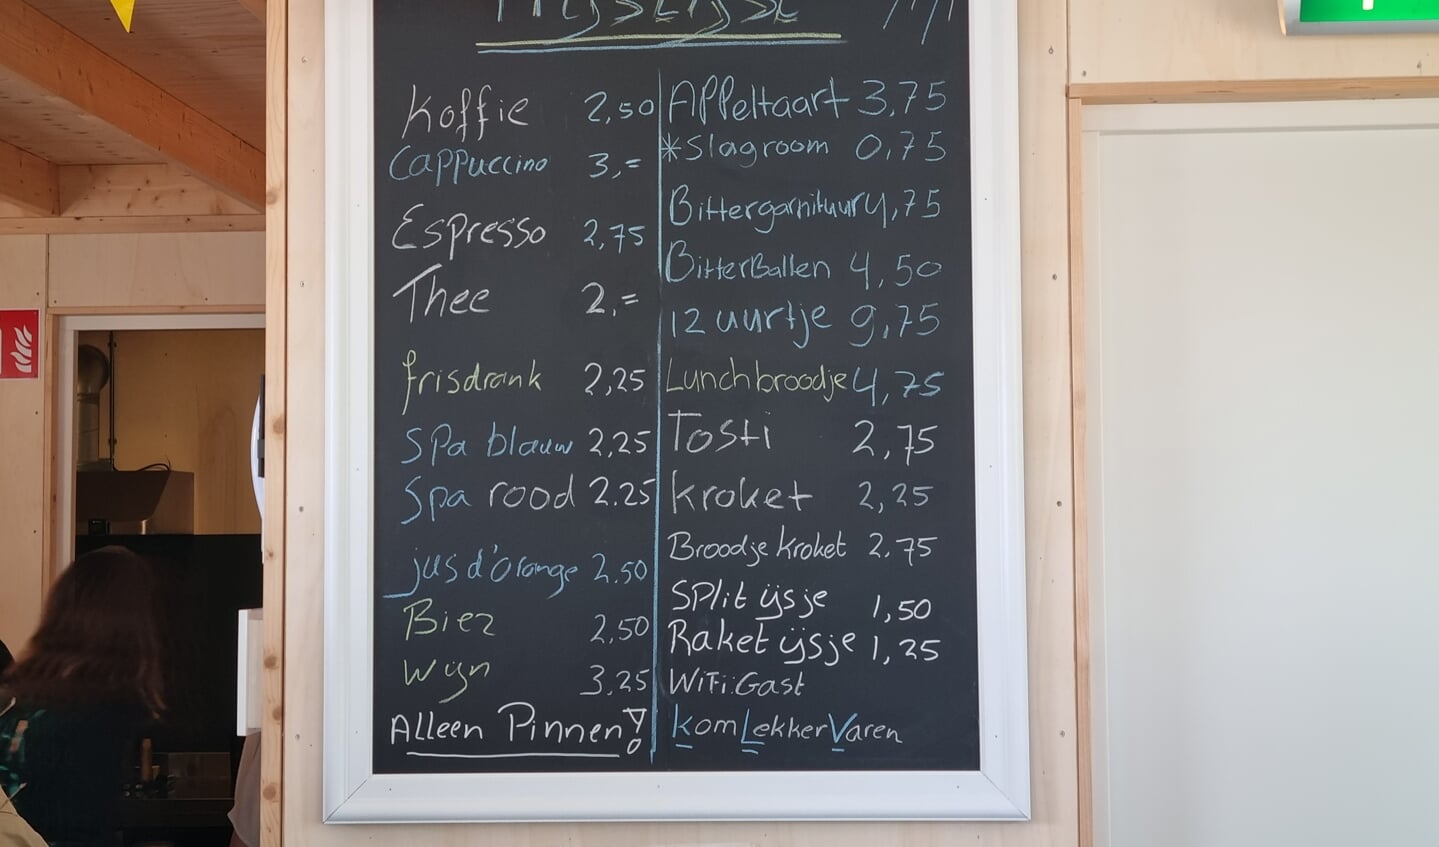 Prijslijst
Koffie 2,50
Cappuccino 3,=
Espresso 2,75
Thee 2,=
frisdrank 2,25
Spa blauw 2,25
Spa rood 2.25
jus d'Orange 2.50
Bier 2,50
Wijn 3,25
Alleen Pinnen!
Appeltaart 3,75
*Slagroom 0,75
Bittergarnituur 4,75
BitterBallen 4,50
12 uurtje 9,75
Lunchbroodje 4,75
Tosti 2,75
Kroket 2,25
Broodje Kroket 2.75
Split ijsje 1,50
Raket ijsje 1,25
WiFi:Gast
KomLekkerVaren